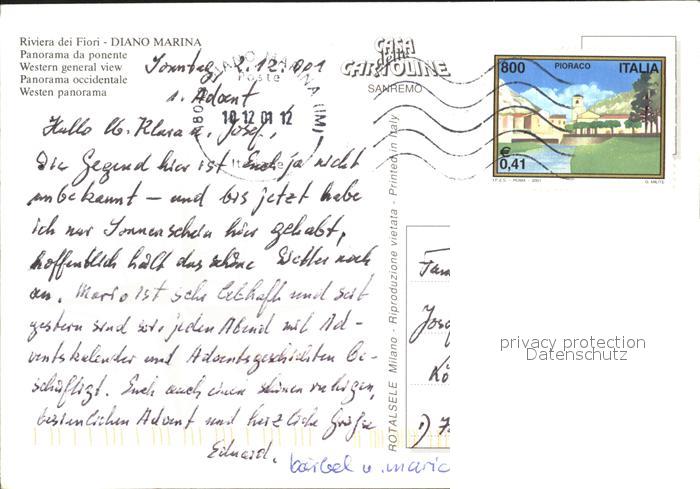 Riviera dei Fiori - DIANO MARINA
Panorama da ponente
Western general view
Panorama occidentale
Westen panorama
Sonntag, 2.12.001
1. Advent
CASA
delle
CARTOLINE
SANREMO
DIANO MARINA (IM)
Poste
10.12.01.12
800 PIORACO ITALIA
€
0,41
I.P.Z.S. - ROMA - 2001
Hallo lb. Klara u. Josef,
Die Gegend hier ist Euch ja nicht
unbekannt – und bis jetzt habe
ich nur Sonnenschein hier gehabt,
hoffentlich hält das schöne Wetter noch
an. Mario ist sehr lebhaft und seit
gestern sind wir jeden Abend mit Ad-
ventskalender und Adventsgeschichten be-
schäftigt. Euch auch einen schönen ruhigen,
besinnlichen Advent und herzliche Grüße
Eduard.
bärbel u. mario
ROTALSELE Milano - Riproduzione vietata - Printed in Italy
Fam
Jose
Kö
privacy protection
Datenschutz